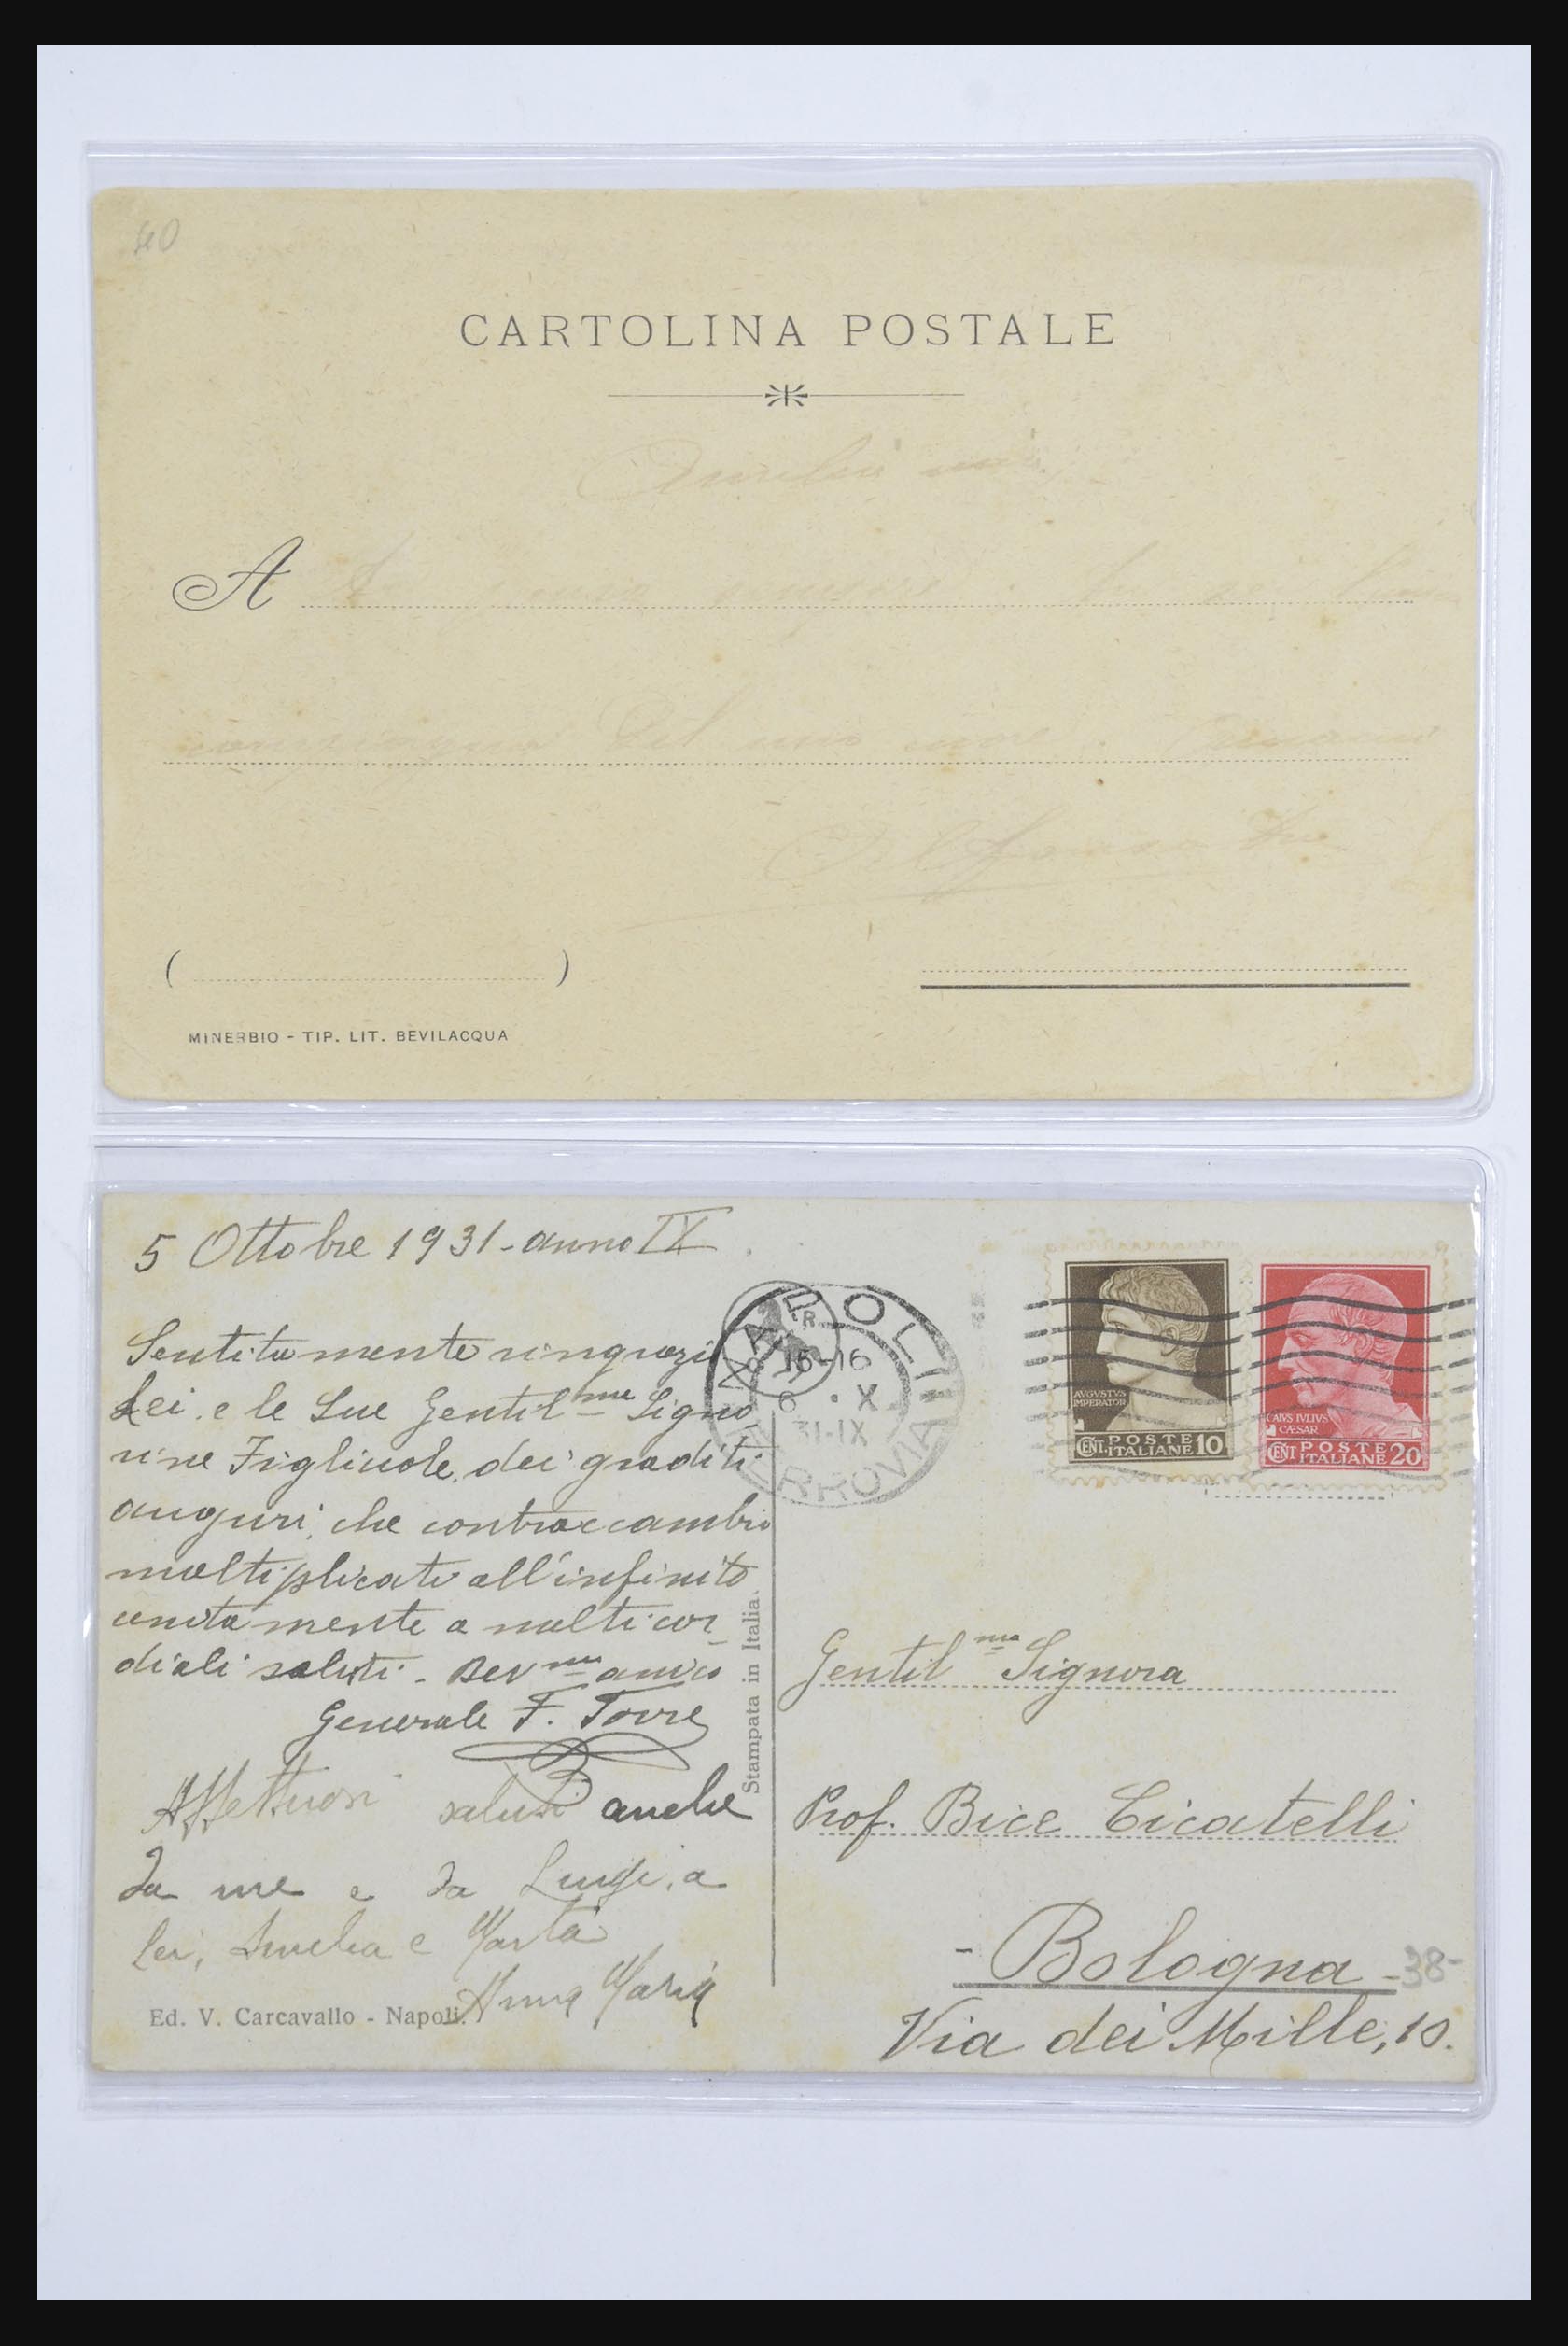 40
CARTOLINA POSTALE
A
( )
MINERBIO - TIP. LIT. BEVILACQUA
5 Ottobre 1931 - anno IX
Sentitamente ringrazio
Lei e le Sue Gentil me Signo
rine Figliuole, dei graditi
auguri, che contraccambio
moltiplicati all'infinito
unitamente a molti cor_
diali saluti - Dev mo amico
Generale F. Torre
Affettuosi saluti anche
da me e da Luigi, a
lei, Amelia e Marta
Anna Maria
Ed. V. Carcavallo - Napoli.
Stampata in Italia.
NAPOLI
15-16
6 • X
31-IX
FERROVIA
AVGVSTVS
IMPERATOR
CENT. POSTE ITALIANE 10
CAIVS IVLIVS
CÆSAR
CENT POSTE ITALIANE 20
Gentil ma Signora
Prof. Bice Cicatelli
- Bologna - 38-
Via dei Mille, 10.